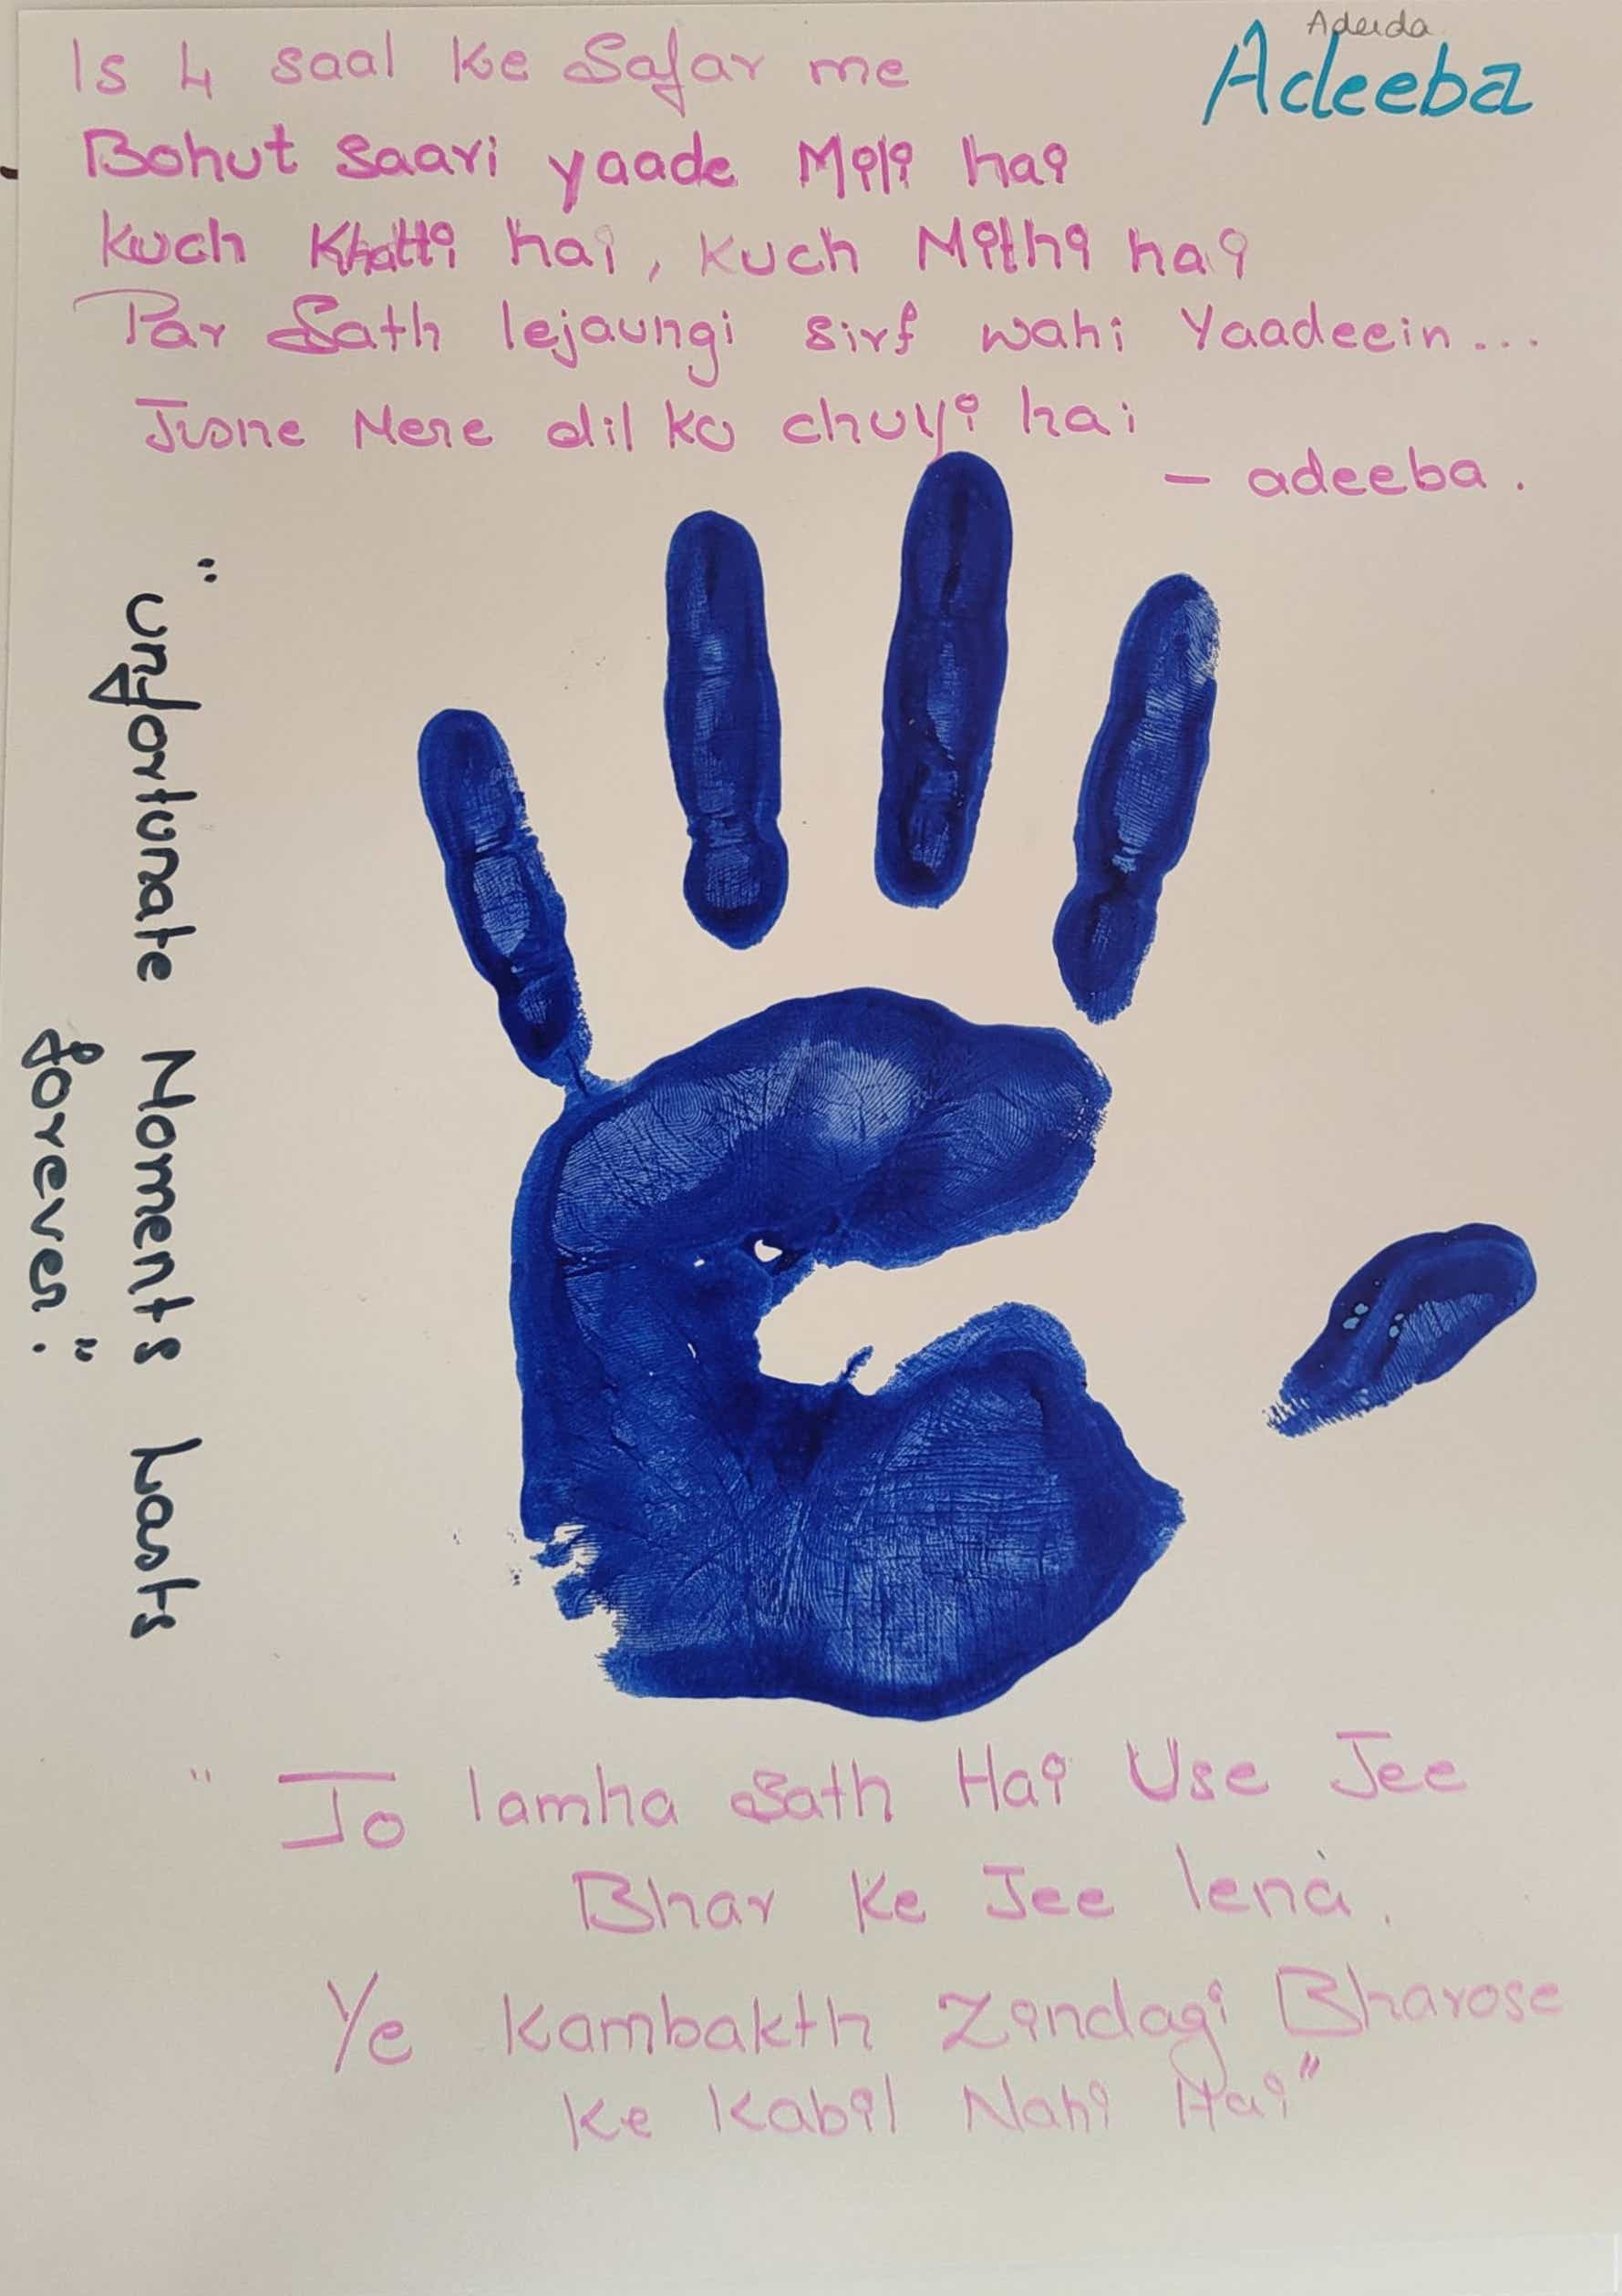 Adeeba
Is 4 saal ke Safar me
Bohut saari yaade Mili hai
kuch Khatti hai, kuch Mithi hai
Par Sath lejaungi sirf wahi Yaadeein...
Jisne Mere dil ko chuyi hai
- adeeba.
"unfortunate Moments Lasts
forever."
"Jo lamha Sath Hai Use Jee
Bhar Ke Jee lena.
Ye Kambakth Zindagi Bharose
Ke Kabil Nahi Hai"